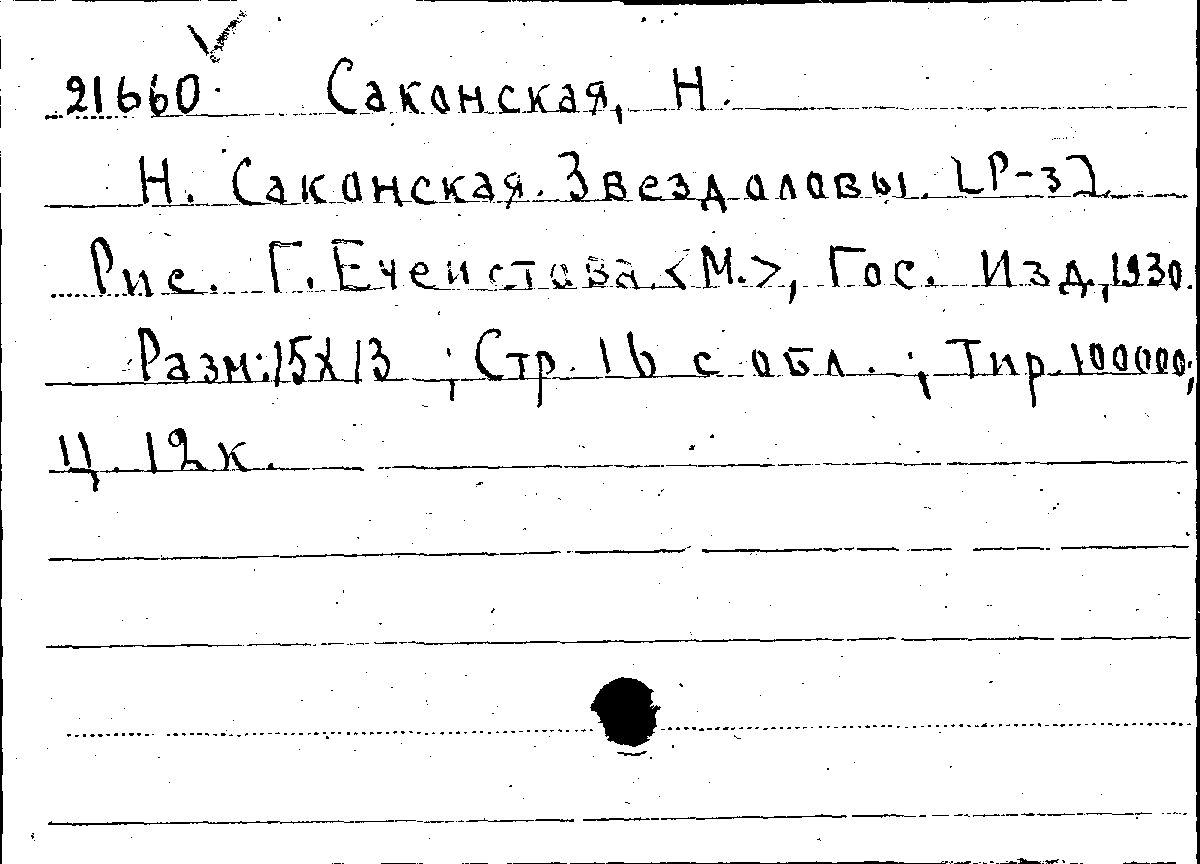 21660. Саконская, Н.
Н. Саконская. Звездоловы. [Р-з].
Рис. Г. Ечеистова. <М.>, Гос. Изд., 1930.
Разм: 15х13 ; Стр. 16 с обл. ; Тир. 100000;
Ц. 12 к.